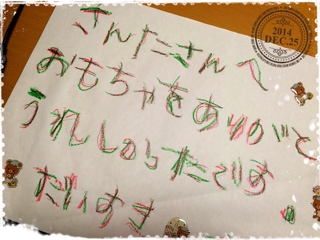 さんたさんへ
おもちゃをありがと
うれしかったです
だいすき
2014
DEC.25